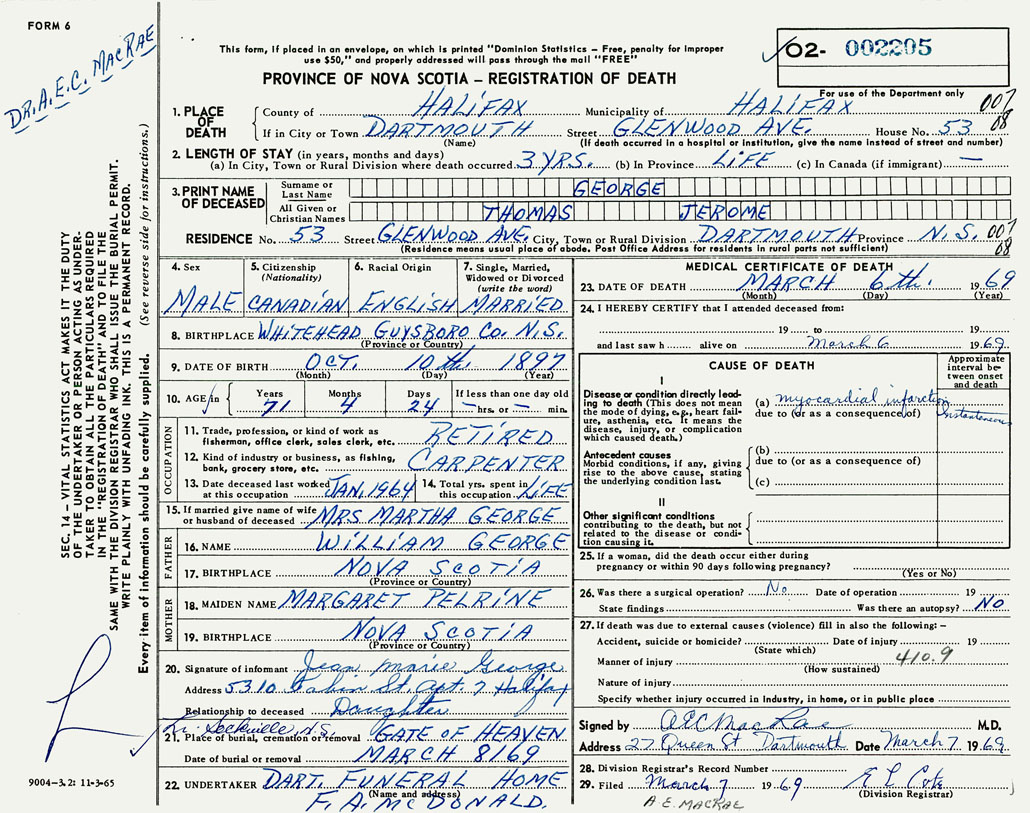 FORM 6
DR. A.E.C. MACRAE
This form, if placed in an envelope, on which is printed "Dominion Statistics – Free, penalty for improper
use $50," and properly addressed will pass through the mail "FREE"
PROVINCE OF NOVA SCOTIA – REGISTRATION OF DEATH
02- 002205
For use of the Department only
007
08
1. PLACE OF DEATH
County of HALIFAX Municipality of HALIFAX
If in City or Town DARTMOUTH Street GLENWOOD AVE. House No. 53
(Name) (If death occurred in a hospital or institution, give the name instead of street and number)
2. LENGTH OF STAY (in years, months and days)
(a) In City, Town or Rural Division where death occurred 3 YRS. (b) In Province LIFE (c) In Canada (if immigrant) —
3. PRINT NAME OF DECEASED
Surname or Last Name GEORGE
All Given or Christian Names THOMAS JEROME
RESIDENCE No. 53 Street GLENWOOD AVE. City, Town or Rural Division DARTMOUTH Province N.S. 007
08
(Residence means usual place of abode. Post Office Address for residents in rural parts not sufficient)
4. Sex MALE
5. Citizenship (Nationality) CANADIAN
6. Racial Origin ENGLISH
7. Single, Married, Widowed or Divorced (write the word) MARRIED
8. BIRTHPLACE WHITEHEAD GUYSBORO CO. N.S.
(Province or Country)
9. DATE OF BIRTH OCT. 10th 1897
(Month) (Day) (Year)
10. AGE in Years 71 Months 4 Days 24 If less than one day old — hrs. or — min.
OCCUPATION
11. Trade, profession, or kind of work as fisherman, office clerk, sales clerk, etc. RETIRED
12. Kind of industry or business, as fishing, bank, grocery store, etc. CARPENTER
13. Date deceased last worked at this occupation JAN, 1964 14. Total yrs. spent in this occupation LIFE
15. If married give name of wife or husband of deceased MRS MARTHA GEORGE
FATHER
16. NAME WILLIAM GEORGE
17. BIRTHPLACE NOVA SCOTIA
(Province or Country)
MOTHER
18. MAIDEN NAME MARGARET PELRINE
19. BIRTHPLACE NOVA SCOTIA
(Province or Country)
20. Signature of informant Jean Marie George
Address 5310 St. Apt. 7 Halifax
Relationship to deceased Daughter
Sackville N.S.
21. Place of burial, cremation or removal GATE OF HEAVEN
Date of burial or removal MARCH 8/69
22. UNDERTAKER DART. FUNERAL HOME
(Name and address) F. A. McDONALD.
MEDICAL CERTIFICATE OF DEATH
23. DATE OF DEATH MARCH 6th. 1969
(Month) (Day) (Year)
24. I HEREBY CERTIFY that I attended deceased from:
19 to 19
and last saw h alive on March 6 1969
CAUSE OF DEATH
Approximate interval between onset and death
I
Disease or condition directly leading to death (This does not mean the mode of dying, e.g., heart failure, asthenia, etc. It means the disease, injury, or complication which caused death.)
(a) myocardial infarction Instantaneous
due to (or as a consequence of)
Antecedent causes
Morbid conditions, if any, giving rise to the above cause, stating the underlying condition last.
(b)
due to (or as a consequence of)
(c)
II
Other significant conditions contributing to the death, but not related to the disease or condition causing it.
25. If a woman, did the death occur either during pregnancy or within 90 days following pregnancy?
(Yes or No)
26. Was there a surgical operation? No Date of operation 19
State findings Was there an autopsy? No
27. If death was due to external causes (violence) fill in also the following: –
Accident, suicide or homicide? Date of injury 19
(State which)
410.9
Manner of injury
(How sustained)
Nature of injury
Specify whether injury occurred in industry, in home, or in public place
Signed by AEC MacRae M.D.
Address 27 Queen St Dartmouth Date March 7 1969
28. Division Registrar's Record Number
29. Filed March 7 1969 E L Cote
(Division Registrar)
A.E. MACRAE
SEC. 14 – VITAL STATISTICS ACT MAKES IT THE DUTY
OF THE UNDERTAKER OR PERSON ACTING AS UNDER-
TAKER TO OBTAIN ALL THE PARTICULARS REQUIRED
IN THE "REGISTRATION OF DEATH" AND TO FILE THE
SAME WITH THE DIVISION REGISTRAR WHO SHALL ISSUE THE BURIAL PERMIT.
WRITE PLAINLY WITH UNFADING INK. THIS IS A PERMANENT RECORD.
Every item of information should be carefully supplied. (See reverse side for instructions.)
9004–3.2: 11-3-65